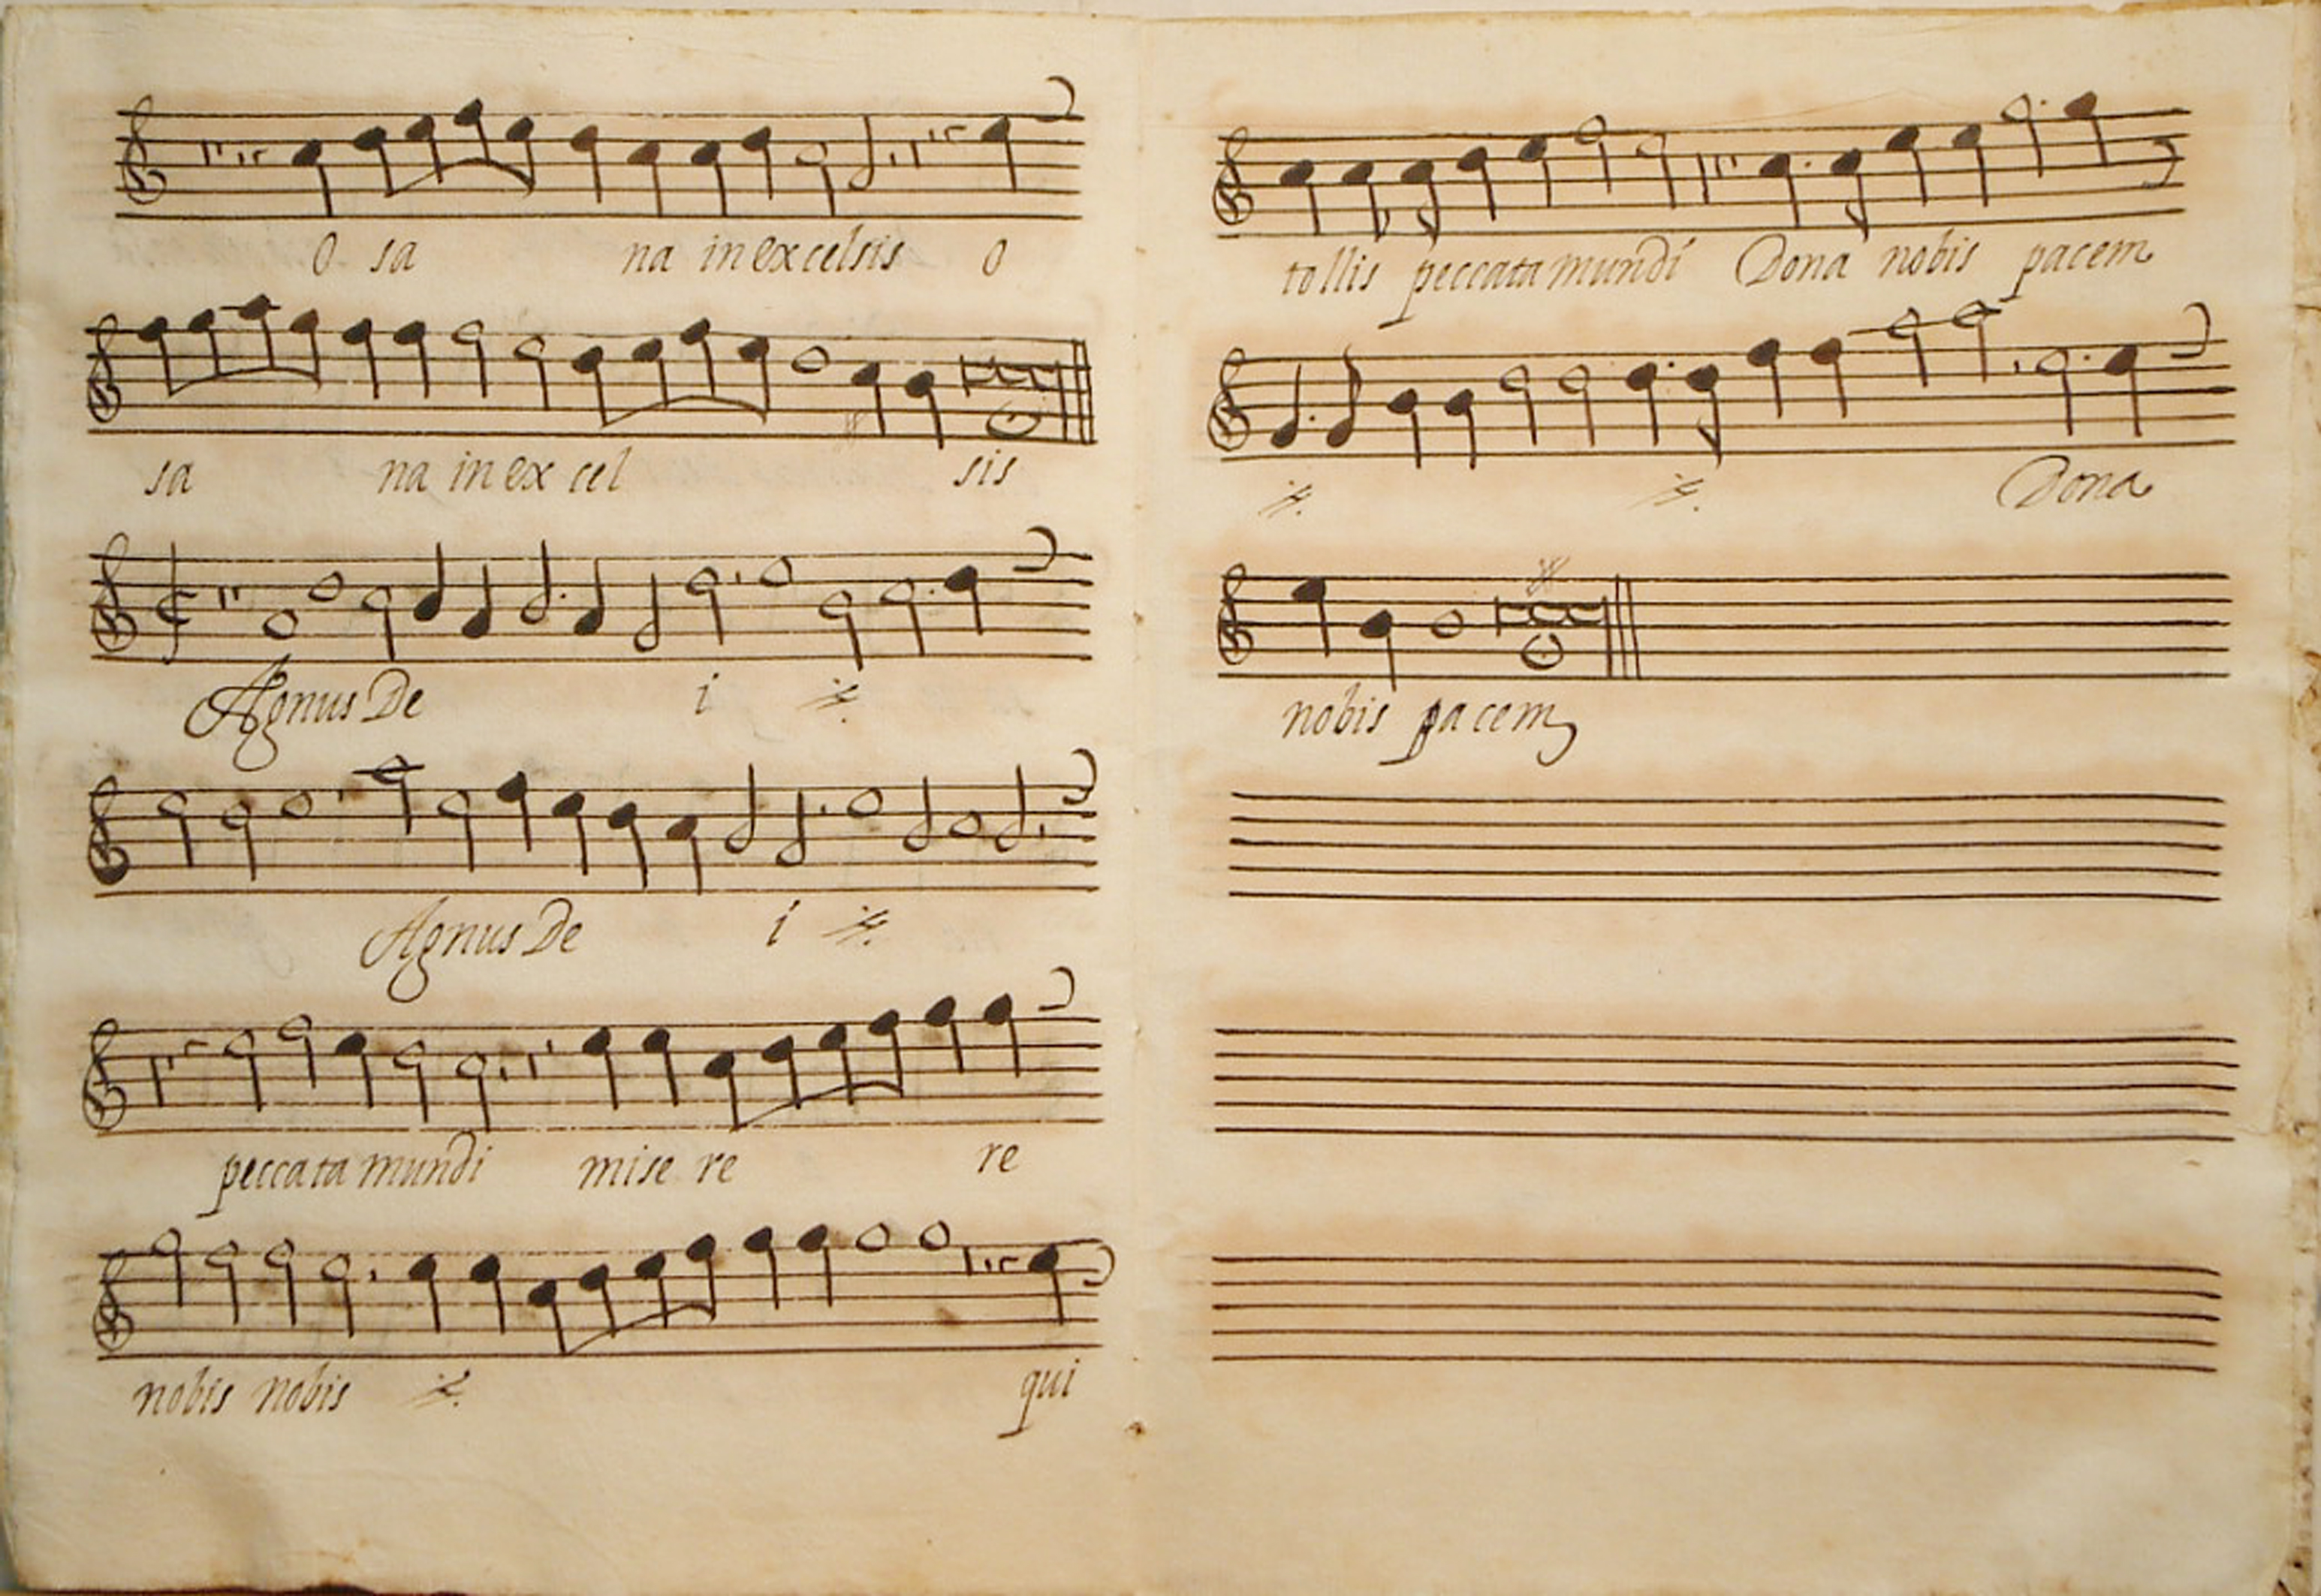 O sa na in excelsis O
sa na in ex cel sis
Agnus De i ij.
Agnus De i ij.
peccata mundi mise re re
nobis nobis ij. qui
tollis peccata mundi Dona nobis pacem
ij. ij. Dona
nobis pacem